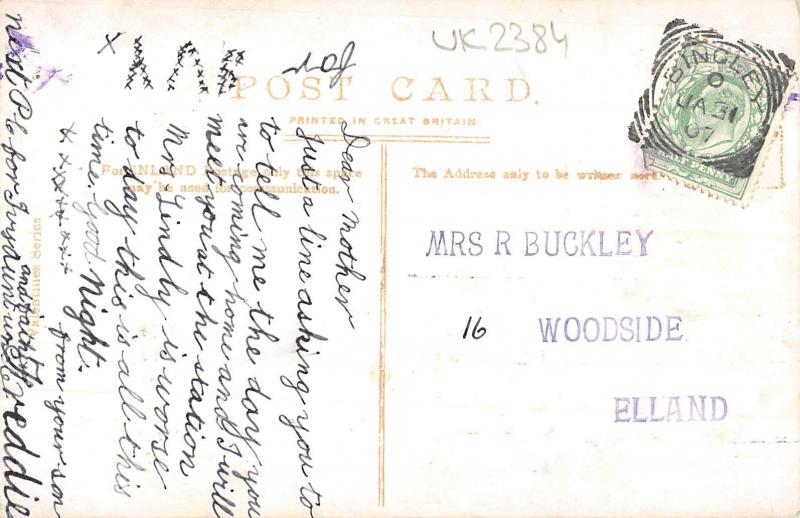 UK2384
POST CARD.
PRINTED IN GREAT BRITAIN.
For INLAND Postage only this space
may be used for communication.
The Address only to be written here
Valentines Series
BINGLEY
O
JA 31
07
HALF PENNY
MRS R BUCKLEY
16 WOODSIDE
ELLAND
Dear Mother
Just a line asking you to
to tell me the day you
are coming home and I will
meet you at the station
Mr Lindly is worse
to day this is all this
time. Good Night.
from your son
Freddie
x x x x x x x x
next P.C for
and